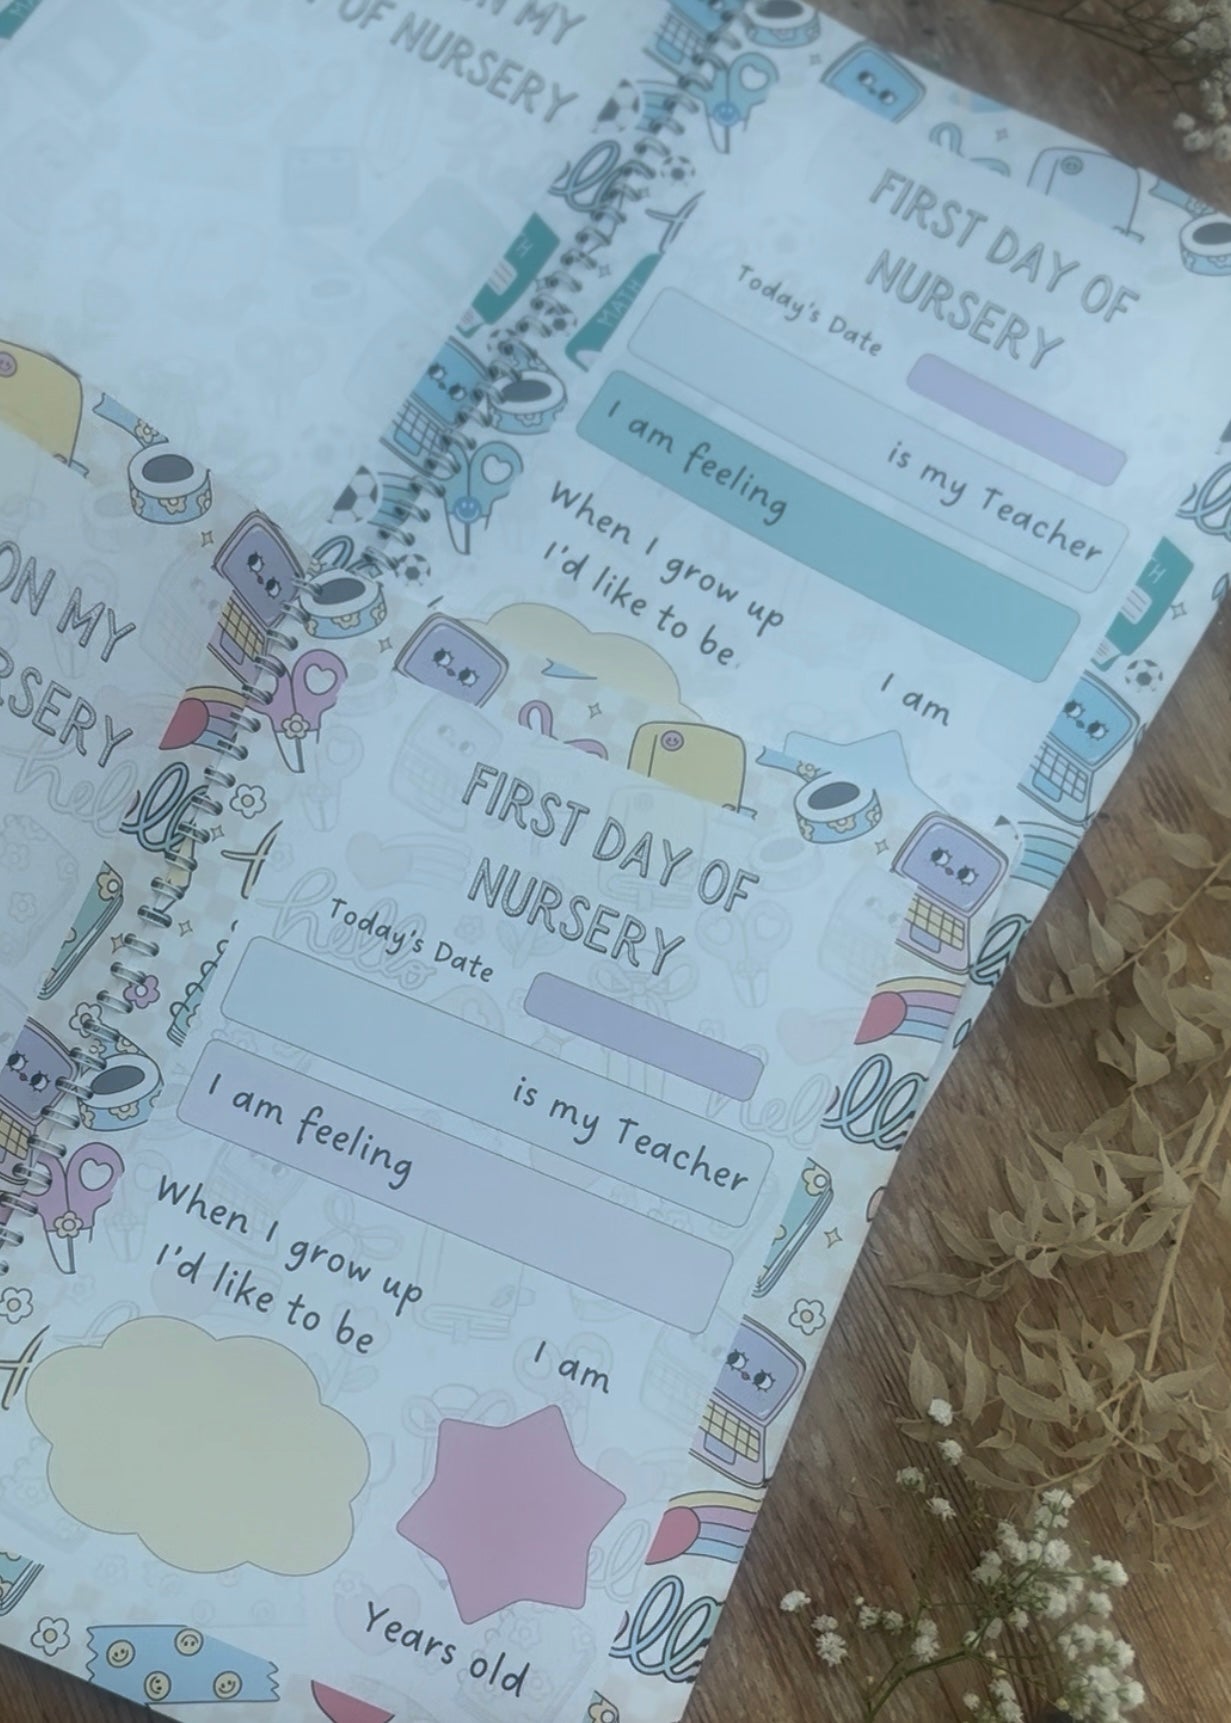 ON MY
OF NURSERY
FIRST DAY OF
NURSERY
Today's Date
is my Teacher
I am feeling
When I grow up
I'd like to be
I am
MATH
ON MY
hello
FIRST DAY OF
NURSERY
Today's Date
is my Teacher
I am feeling
When I grow up
I'd like to be
I am
Years old